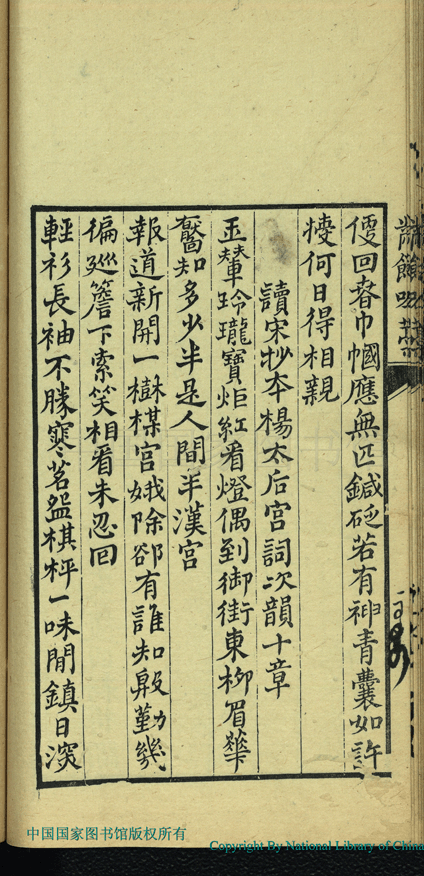 便回春巾幗應無匹鍼砭若有神青囊如許
㨖何日得相親
讀宋抄本楊太后宮詞次韻十章
玉輦玲瓏寶炬紅看燈偶到御街東柳眉華
靨知多少半是人間半漢宮
報道新開一樹楳宮娥除卻有誰知殷勤幾
徧巡簷下索笑相看未忍回
輕衫長袖不勝寒茗盌棋枰一味閒鎮日深
中国国家图书馆版权所有
Copyright By National Library of China